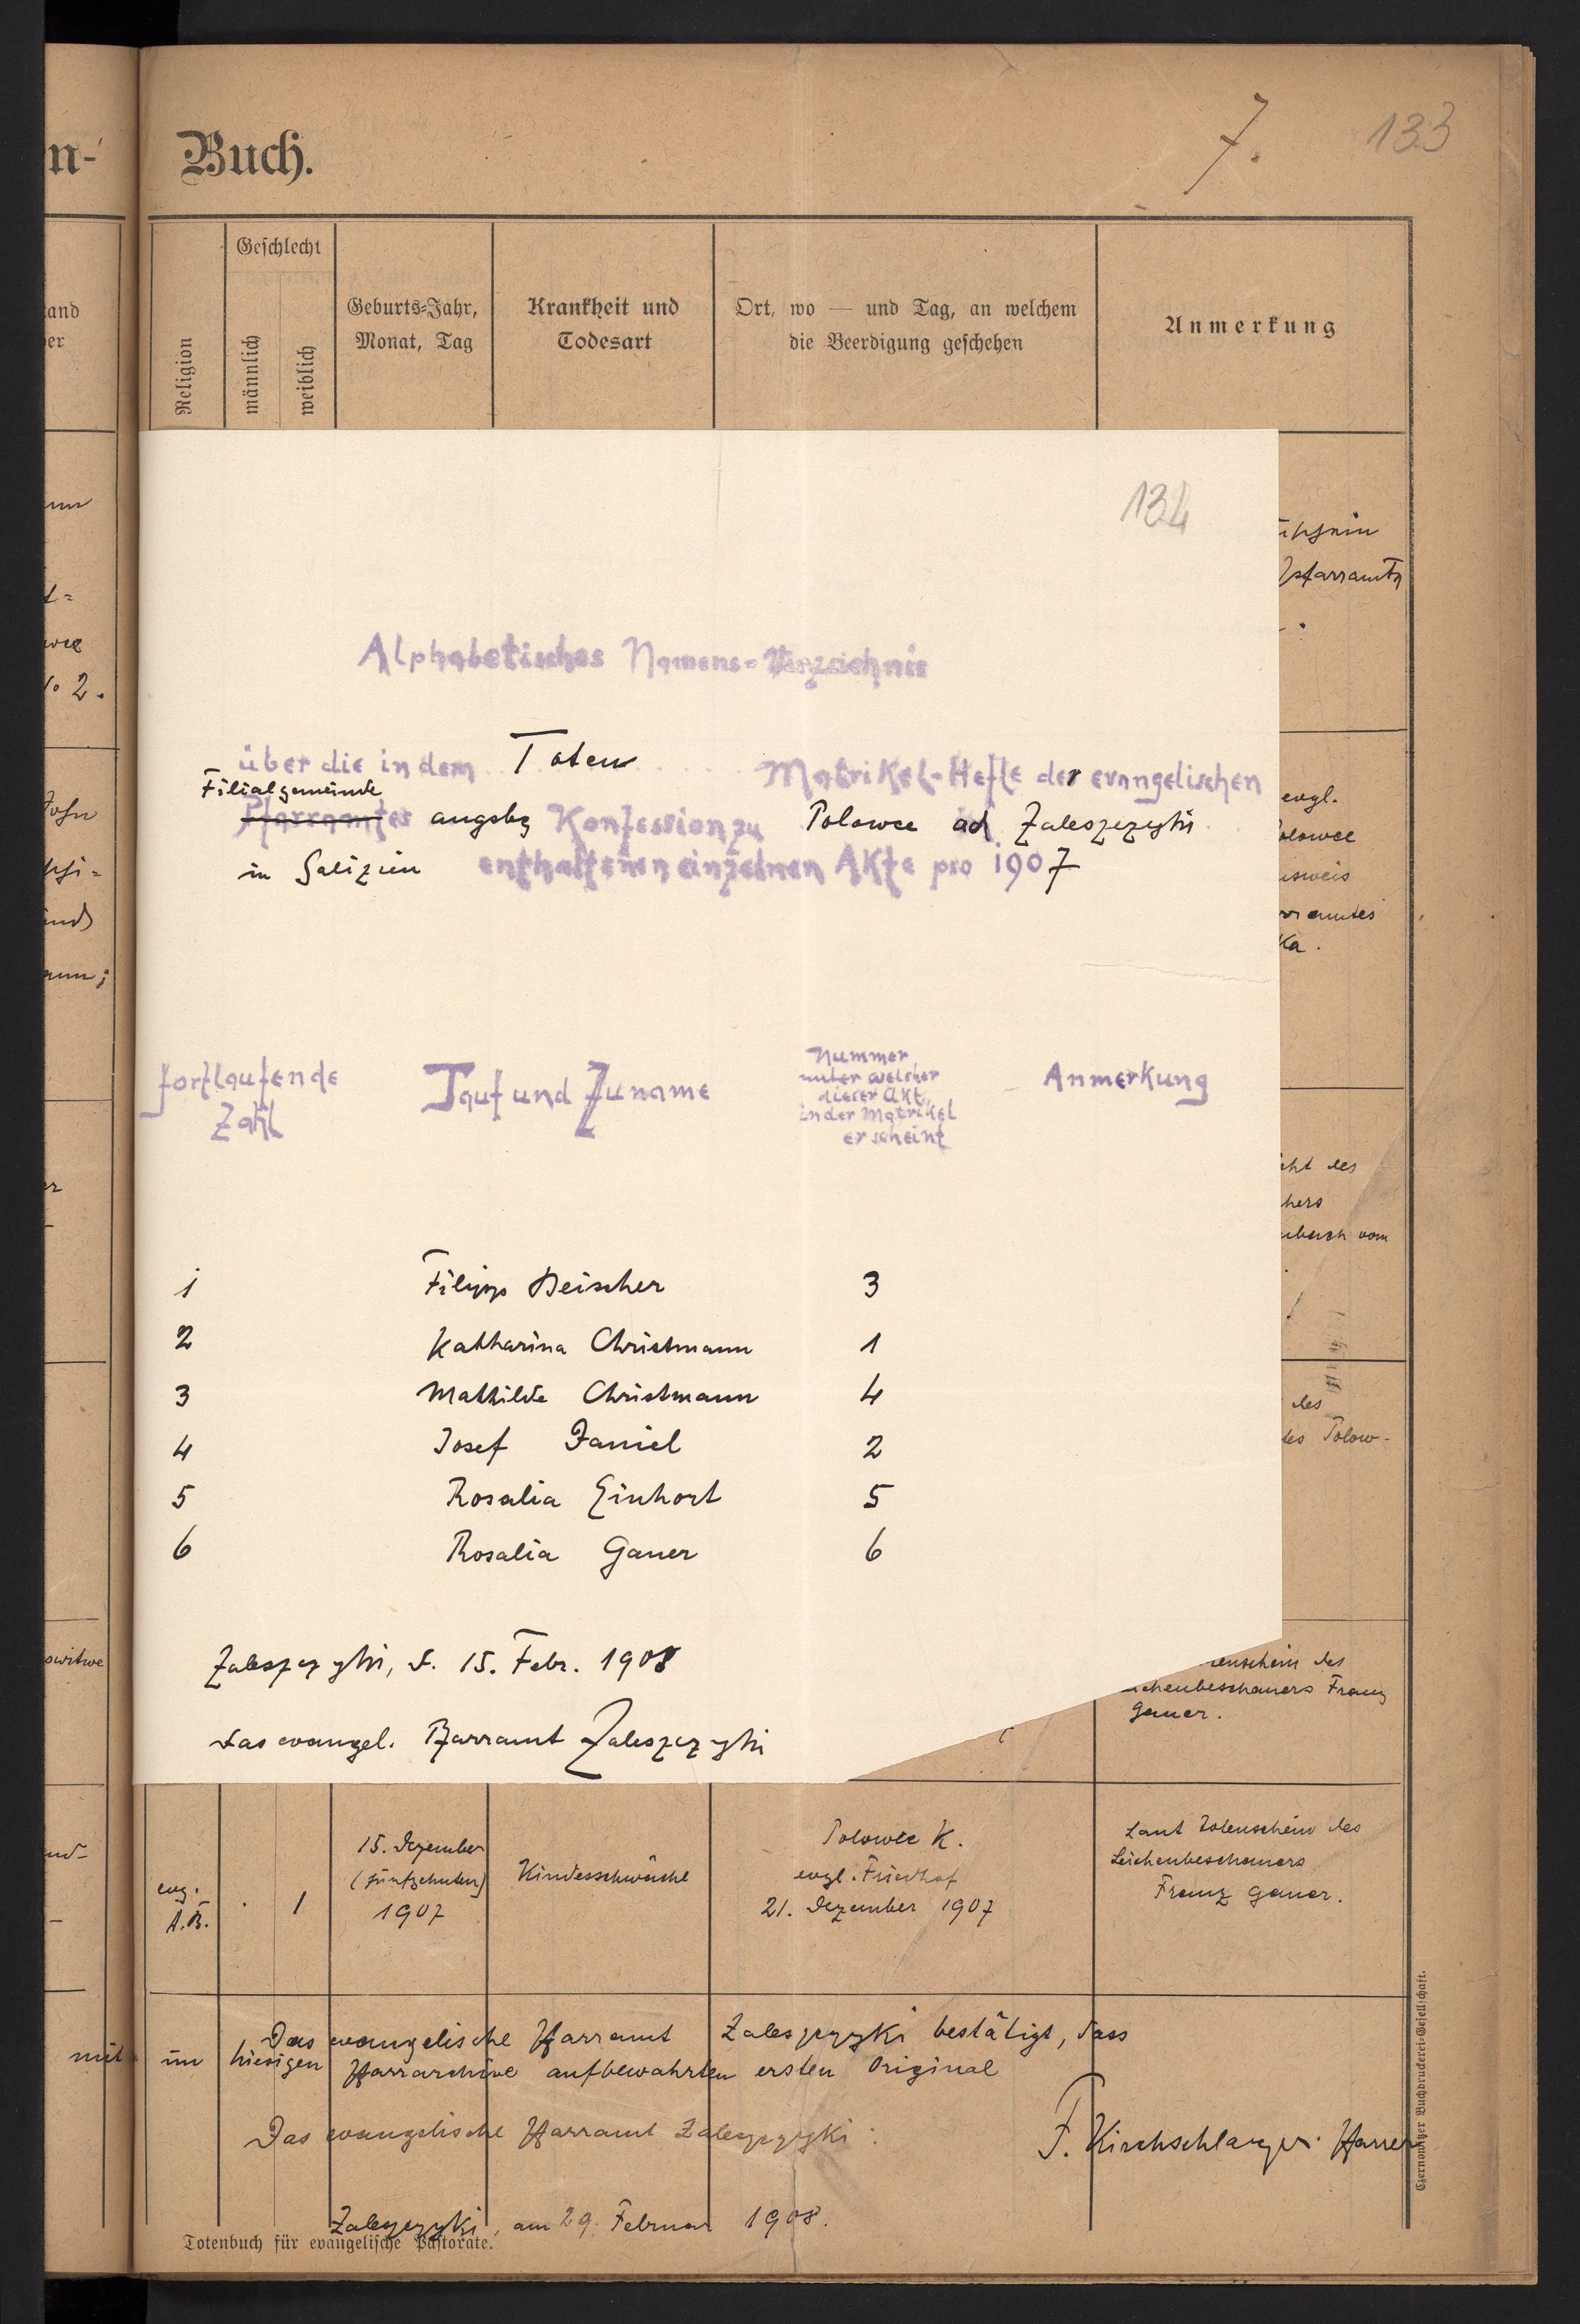 n-
Buch.
7.
133
Religion
Geschlecht
männlich
weiblich
Geburts-Jahr,
Monat, Tag
Krankheit und
Todesart
Ort, wo — und Tag, an welchem
die Beerdigung geschehen
Anmerkung
134
Alphabetisches Namens-Verzeichnis
über die in dem Toten Matrikel-Hefte der evangelischen
Filialgemeinde
Pfarramtes augsbg Konfession zu Polowce ad Zaleszczyki
in Galizien enthaltenen einzelnen Akte pro 1907
fortlaufende
Zahl
Tauf und Zuname
Nummer
unter welcher
dieser Akt
in der Matrikel
erscheint
Anmerkung
1 Filipp Beischer 3
2 Katharina Christmann 1
3 Mathilde Christmann 4
4 Josef Daniel 2
5 Rosalia Einhort 5
6 Rosalia Gauer 6
Zaleszczyki, d. 15. Febr. 1908
Das evangel. Pfarramt Zaleszczyki
Pfarramts
evgl.
olowce
usweis
rramtes
ka.
cht des
hers
ubach vom
des
des Polow-
enschein des
ichenbeschauers Franz
Gauer.
evg.
A.B.
1
15. Dezember
(fünfzehnten)
1907
Kindesschwäche
Polowce K.
evgl. Friedhof
21. Dezember 1907
Laut Totenschein des
Leichenbeschauers
Franz Gauer.
Das evangelische Pfarramt Zaleszczyki bestätigt, dass
mit im hiesigen Pfarrarchive aufbewahrten ersten Original
Das evangelische Pfarramt Zaleszczyki:
F. Kirchschlager Pfarrer
Zaleszczyki, am 29. Februar 1908.
Totenbuch für evangelische Pastorate.
Czernowitzer Buchdruckerei-Gesellschaft.